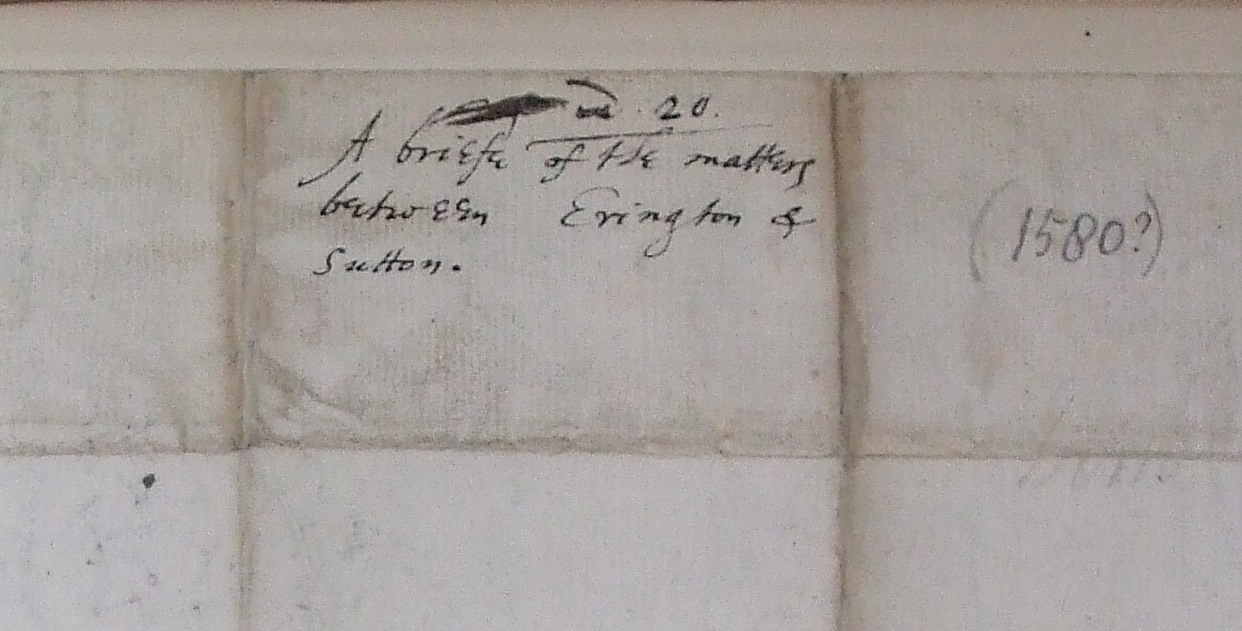 20.
A briefe of the matters
between Erington &
Sutton.
(1580?)